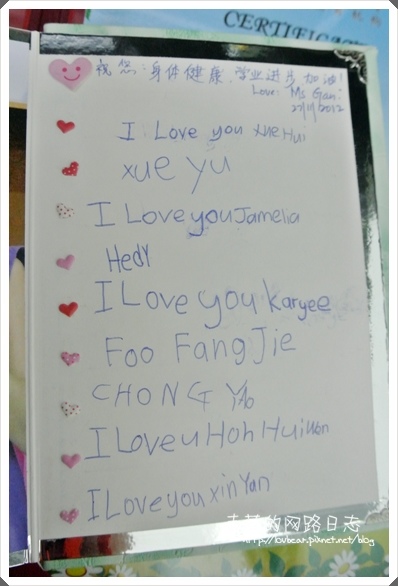 CERTIFICA
祝您：身体健康，学业进步加油！
Love: Ms Gan:
22/11/2012
I Love you Xue Hui
xue yu
I Love you Jamelia
Hedy
I Love you Karyee
Foo Fang Jie
CHONG
I Love u Hoh Hui Wen
I Love you xin Yan
的网路日志
http://loubean.pixnet.net/blog